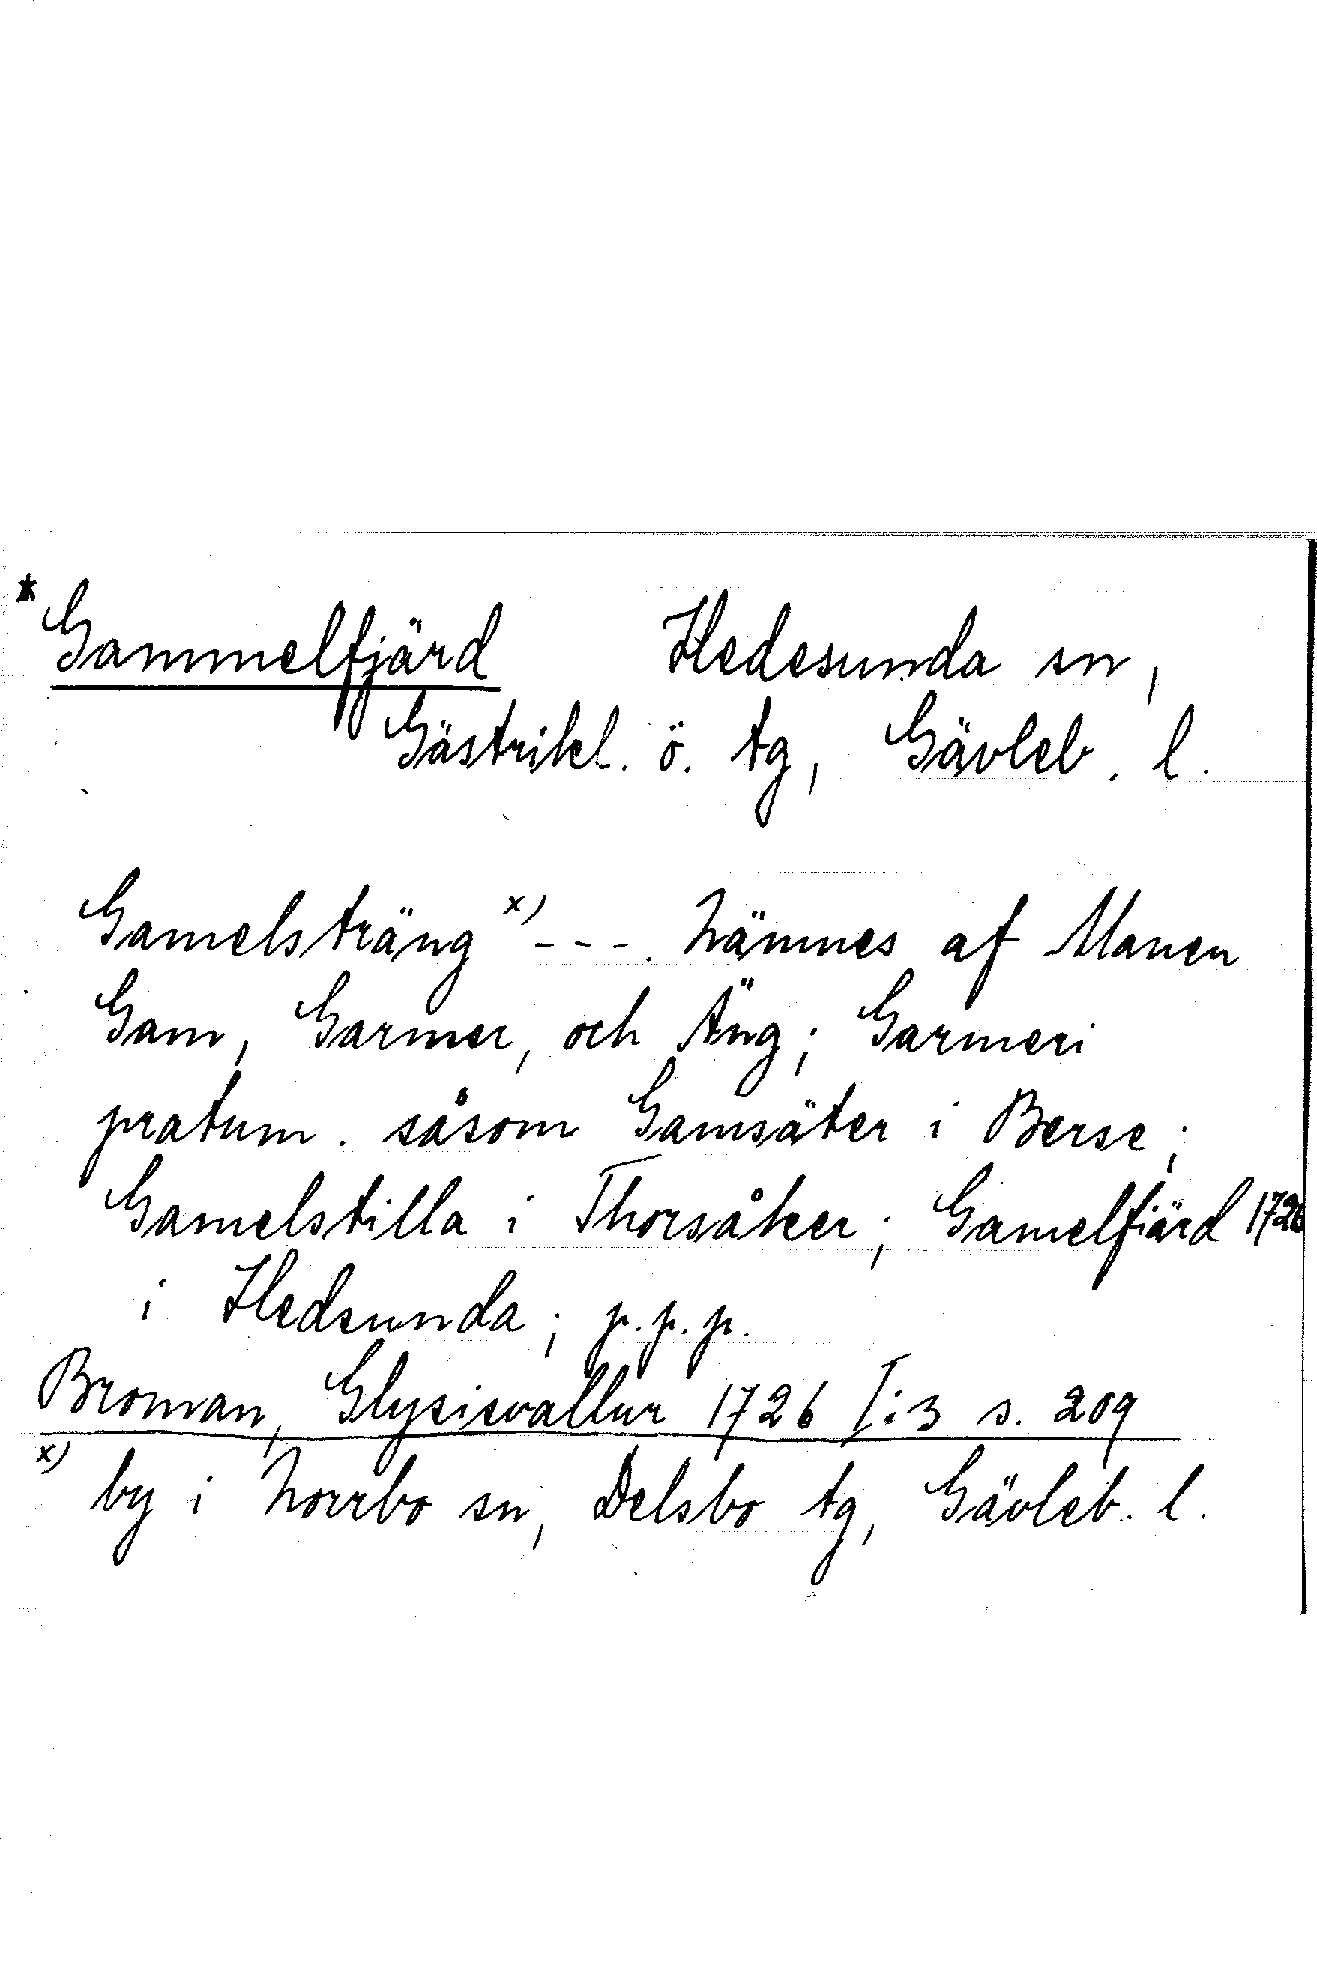 * Gammelfjärd Hedesunda sn,
Gästrikl. ö. tg, Gävleb. l.
Gamelsträng x) - - - . Nämnes af Manen
Gam, Garmer, och Äng; Garmeri
pratum. såsom Gamsäter i Berse;
Gamelstilla i Thorsåker; Gamelfiärd 1726
i Hedsunda; p.p.p.
Broman, Glysisvallur 1726 I:3 s. 209
x) by i Norrbo sn, Delsbo tg, Gävleb. l.